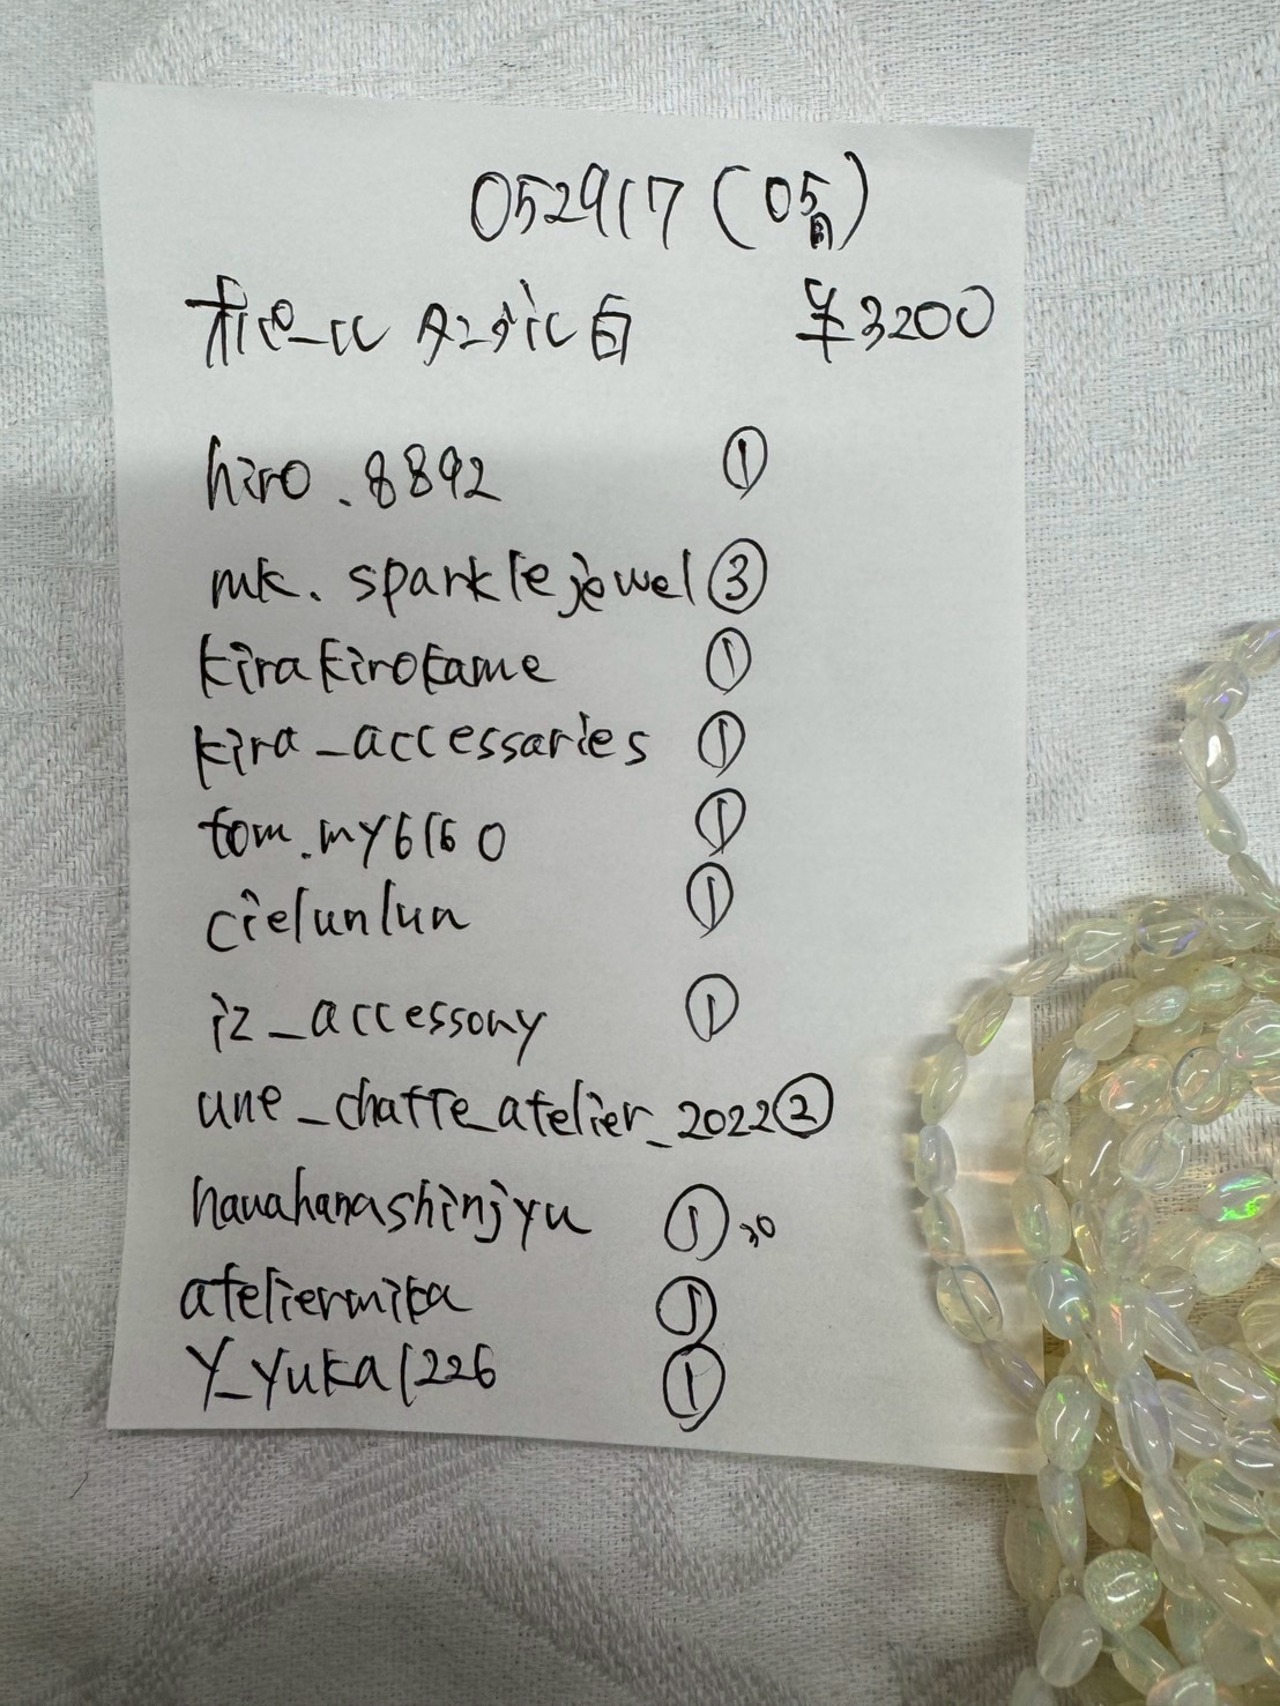 052917 (05月)
オパール タンブル白 ¥3200
hiro.8892 ①
mk.sparklejewel ③
kirakirokame ①
kira_accessaries ①
tom.my6160 ①
cielunlun ①
iz_accessory ①
une_chatte_atelier_2022 ②
hanahanashinjyu ① 30
ateliermika ①
y_yuka1226 ①